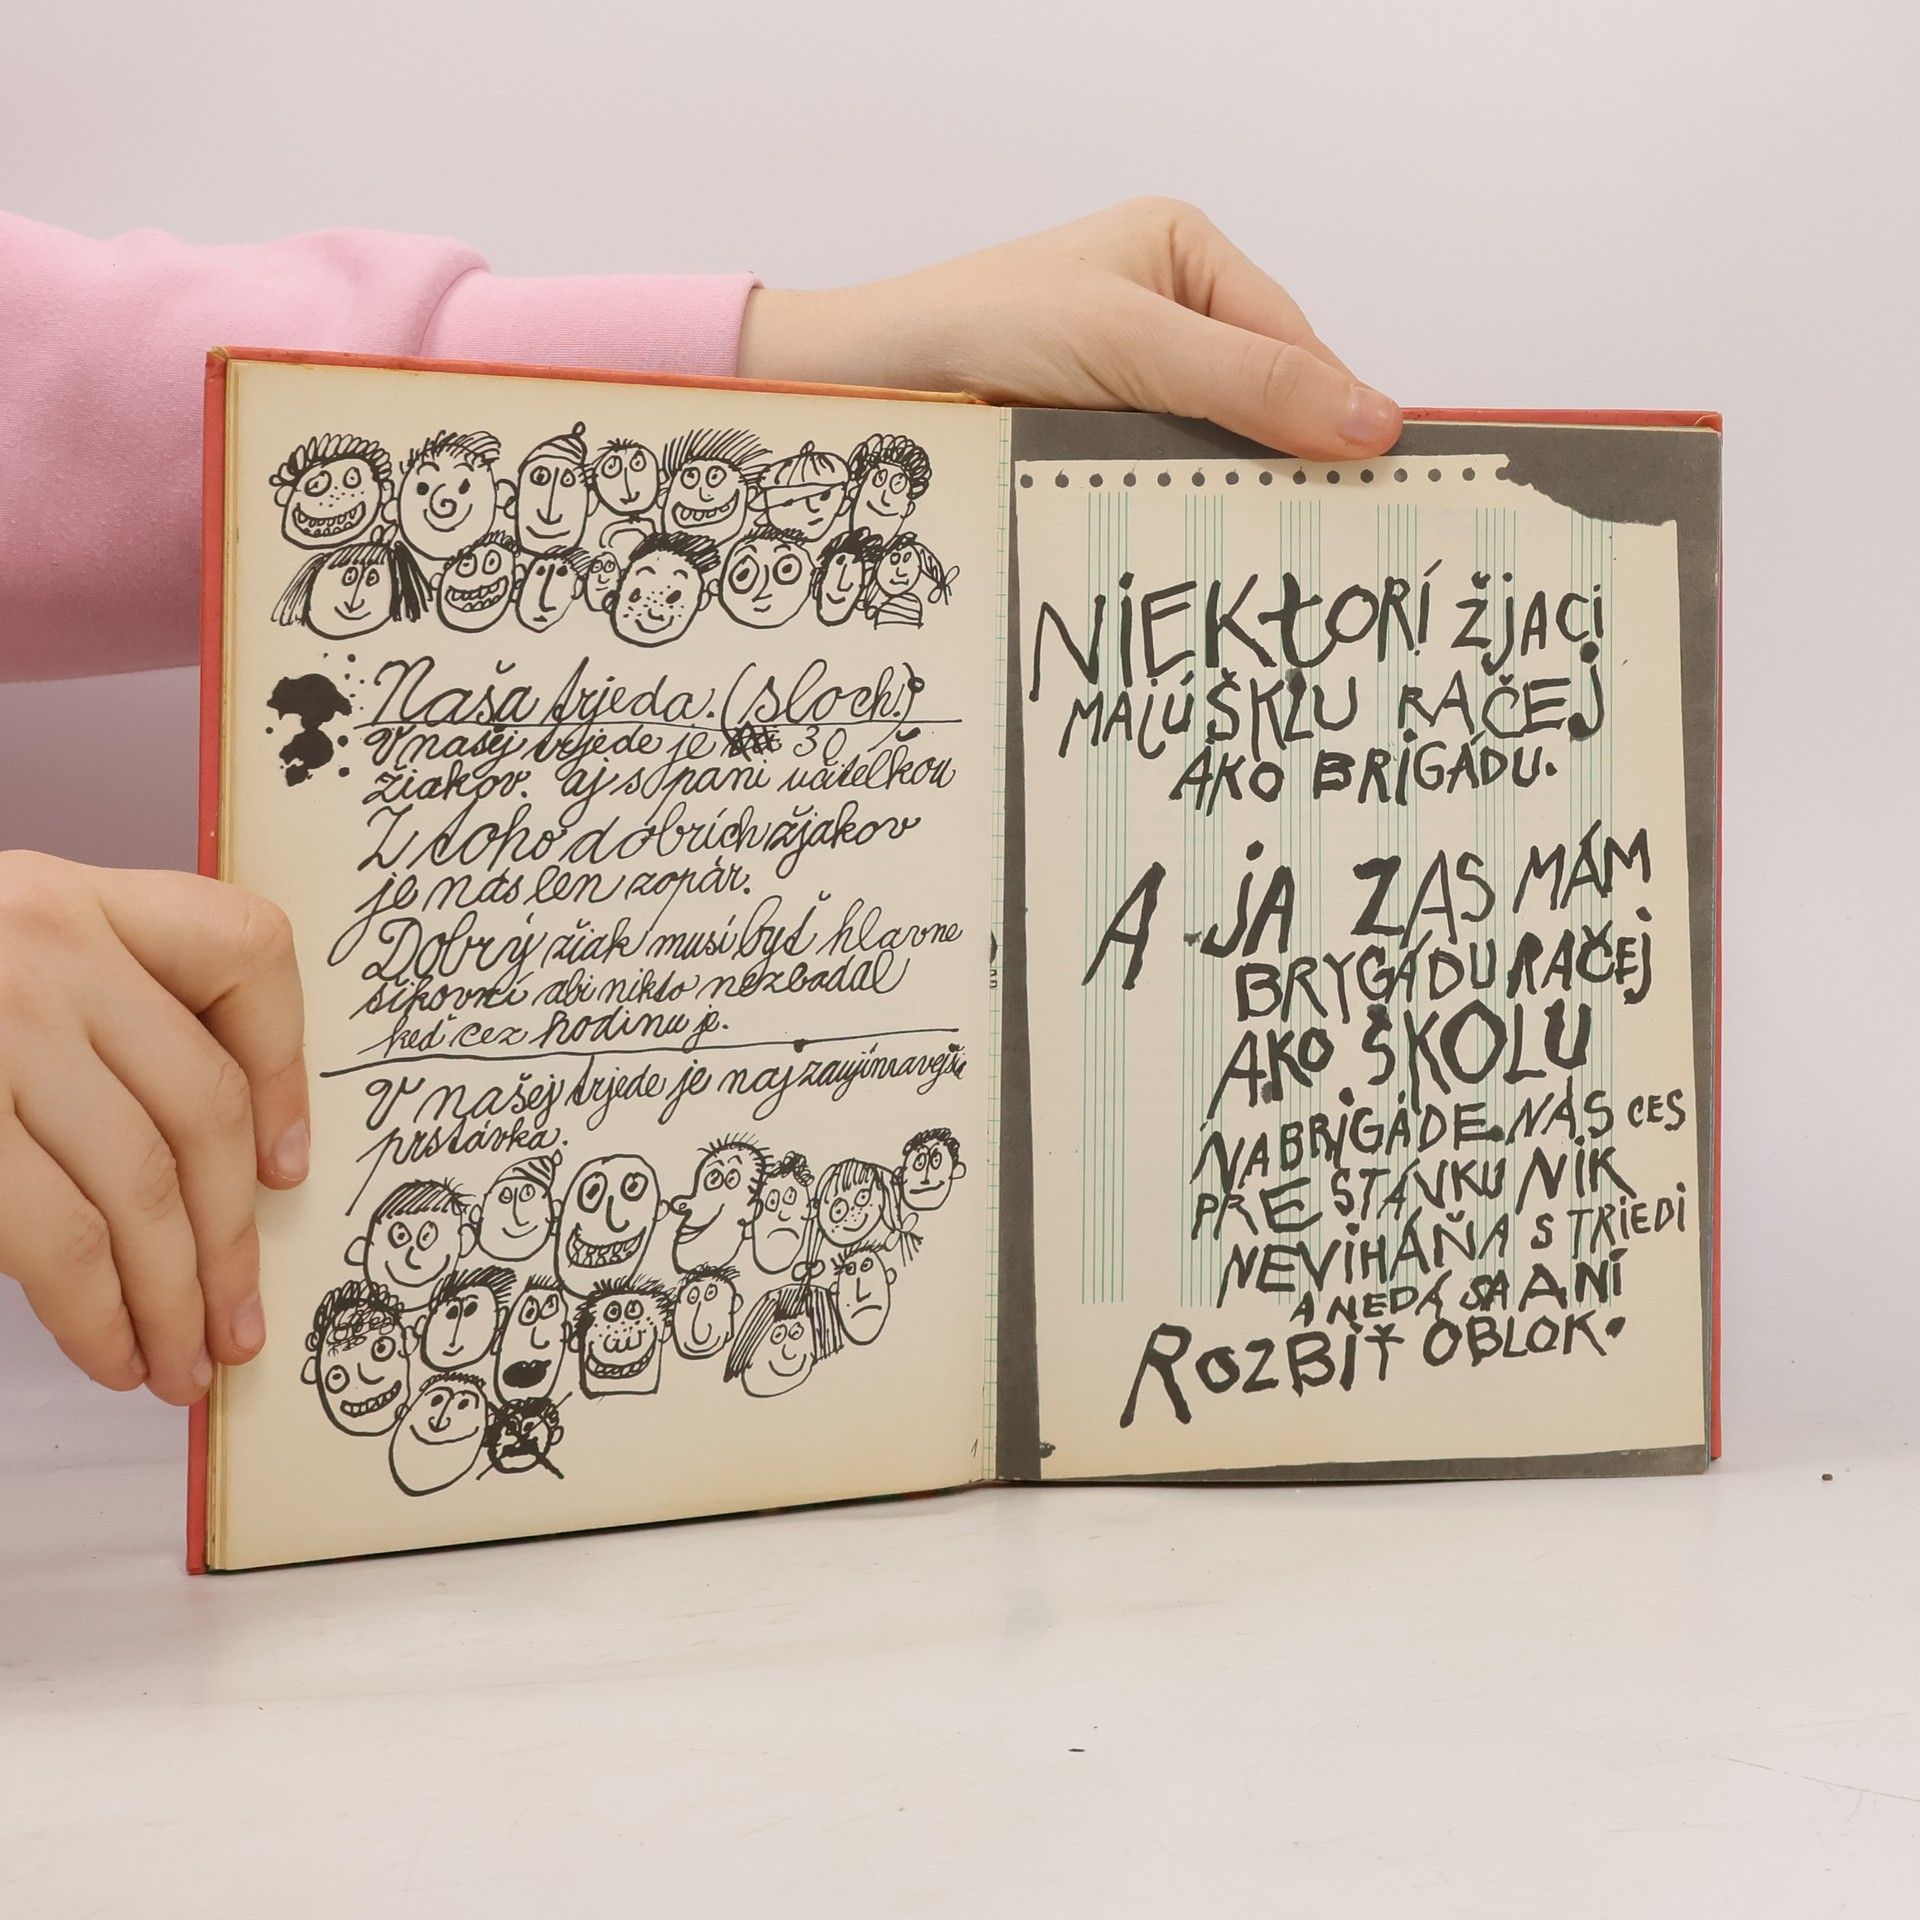 Naša trjeda. (sloch.)
V našej trjede je 30
žiakov. aj s pani učitelkou
Z toho dobrích žjakov
je nás len zopár.
Dobrý žiak musí byť hlavne
šikovní abi nikto nezbadal
keď cez hodinu je.
V našej trjede je najzaujímavejšia
prstávka.
1
NiEKtORÍ žjACi
MAJÚ ŠKLU RAČEJ
AKO BRiGÁDU.
A JA ZAS MÁM
BRYGÁDU RAČEJ
AKO ŠKOLU
NA BRiGÁDE NÁS CES
PRESTÁVKU NiK
NEViHÁŇA S TRiEDi
A NEDÁ SA ANi
ROZBiŤ OBLOK.